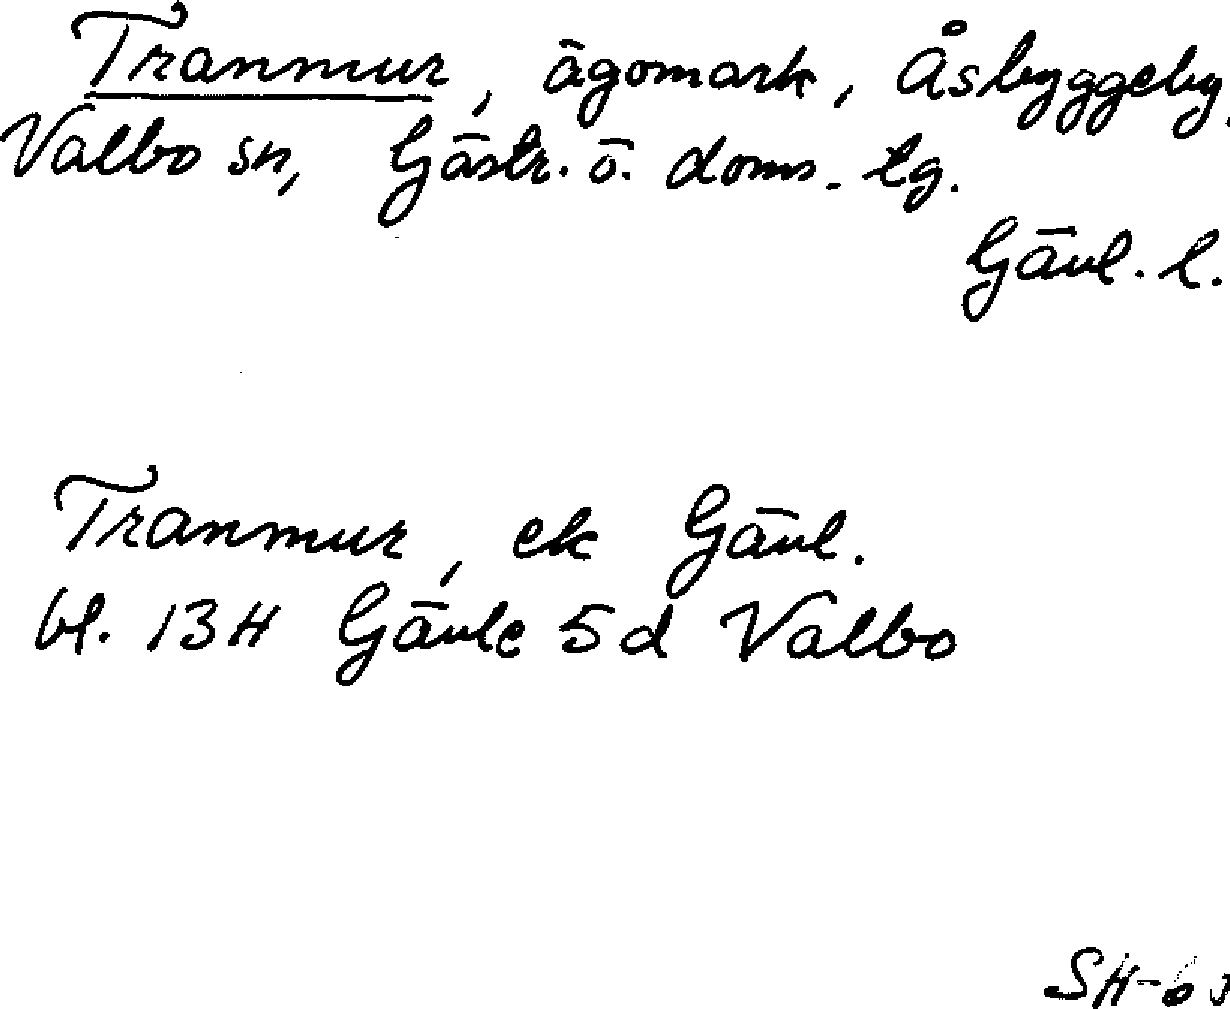 Tranmur, ägomark, Åsbyggeby,
Valbo sn, Gästr. ö. doms. tg.
Gävl. l.
Tranmur, ek Gävl.
bl. 13H Gävle 5d Valbo